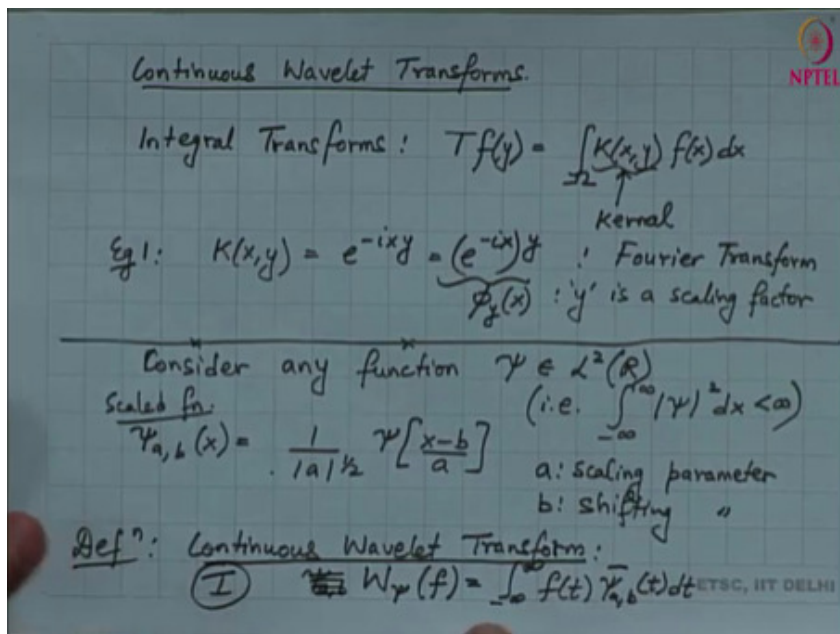 NPTEL
Continuous Wavelet Transforms.
Integral Transforms : Tf(y) = ∫_Ω K(x,y) f(x) dx
Kernal
Eg 1: K(x,y) = e^{-ixy} = (e^{-ix})^y : Fourier Transform
φ_y(x) : 'y' is a scaling factor
Consider any function ψ ∈ L²(R)
Scaled fn. (i.e. ∫_{-∞}^{+∞} |ψ|² dx < ∞)
ψ_{a,b}(x) = 1/|a|^{1/2} ψ[(x-b)/a] a: scaling parameter
b: shifting "
Defⁿ: Continuous Wavelet Transform:
(I) W_ψ(f) = ∫_{-∞}^{∞} f(t) ψ̄_{a,b}(t) dt
ETSC, IIT DELHI